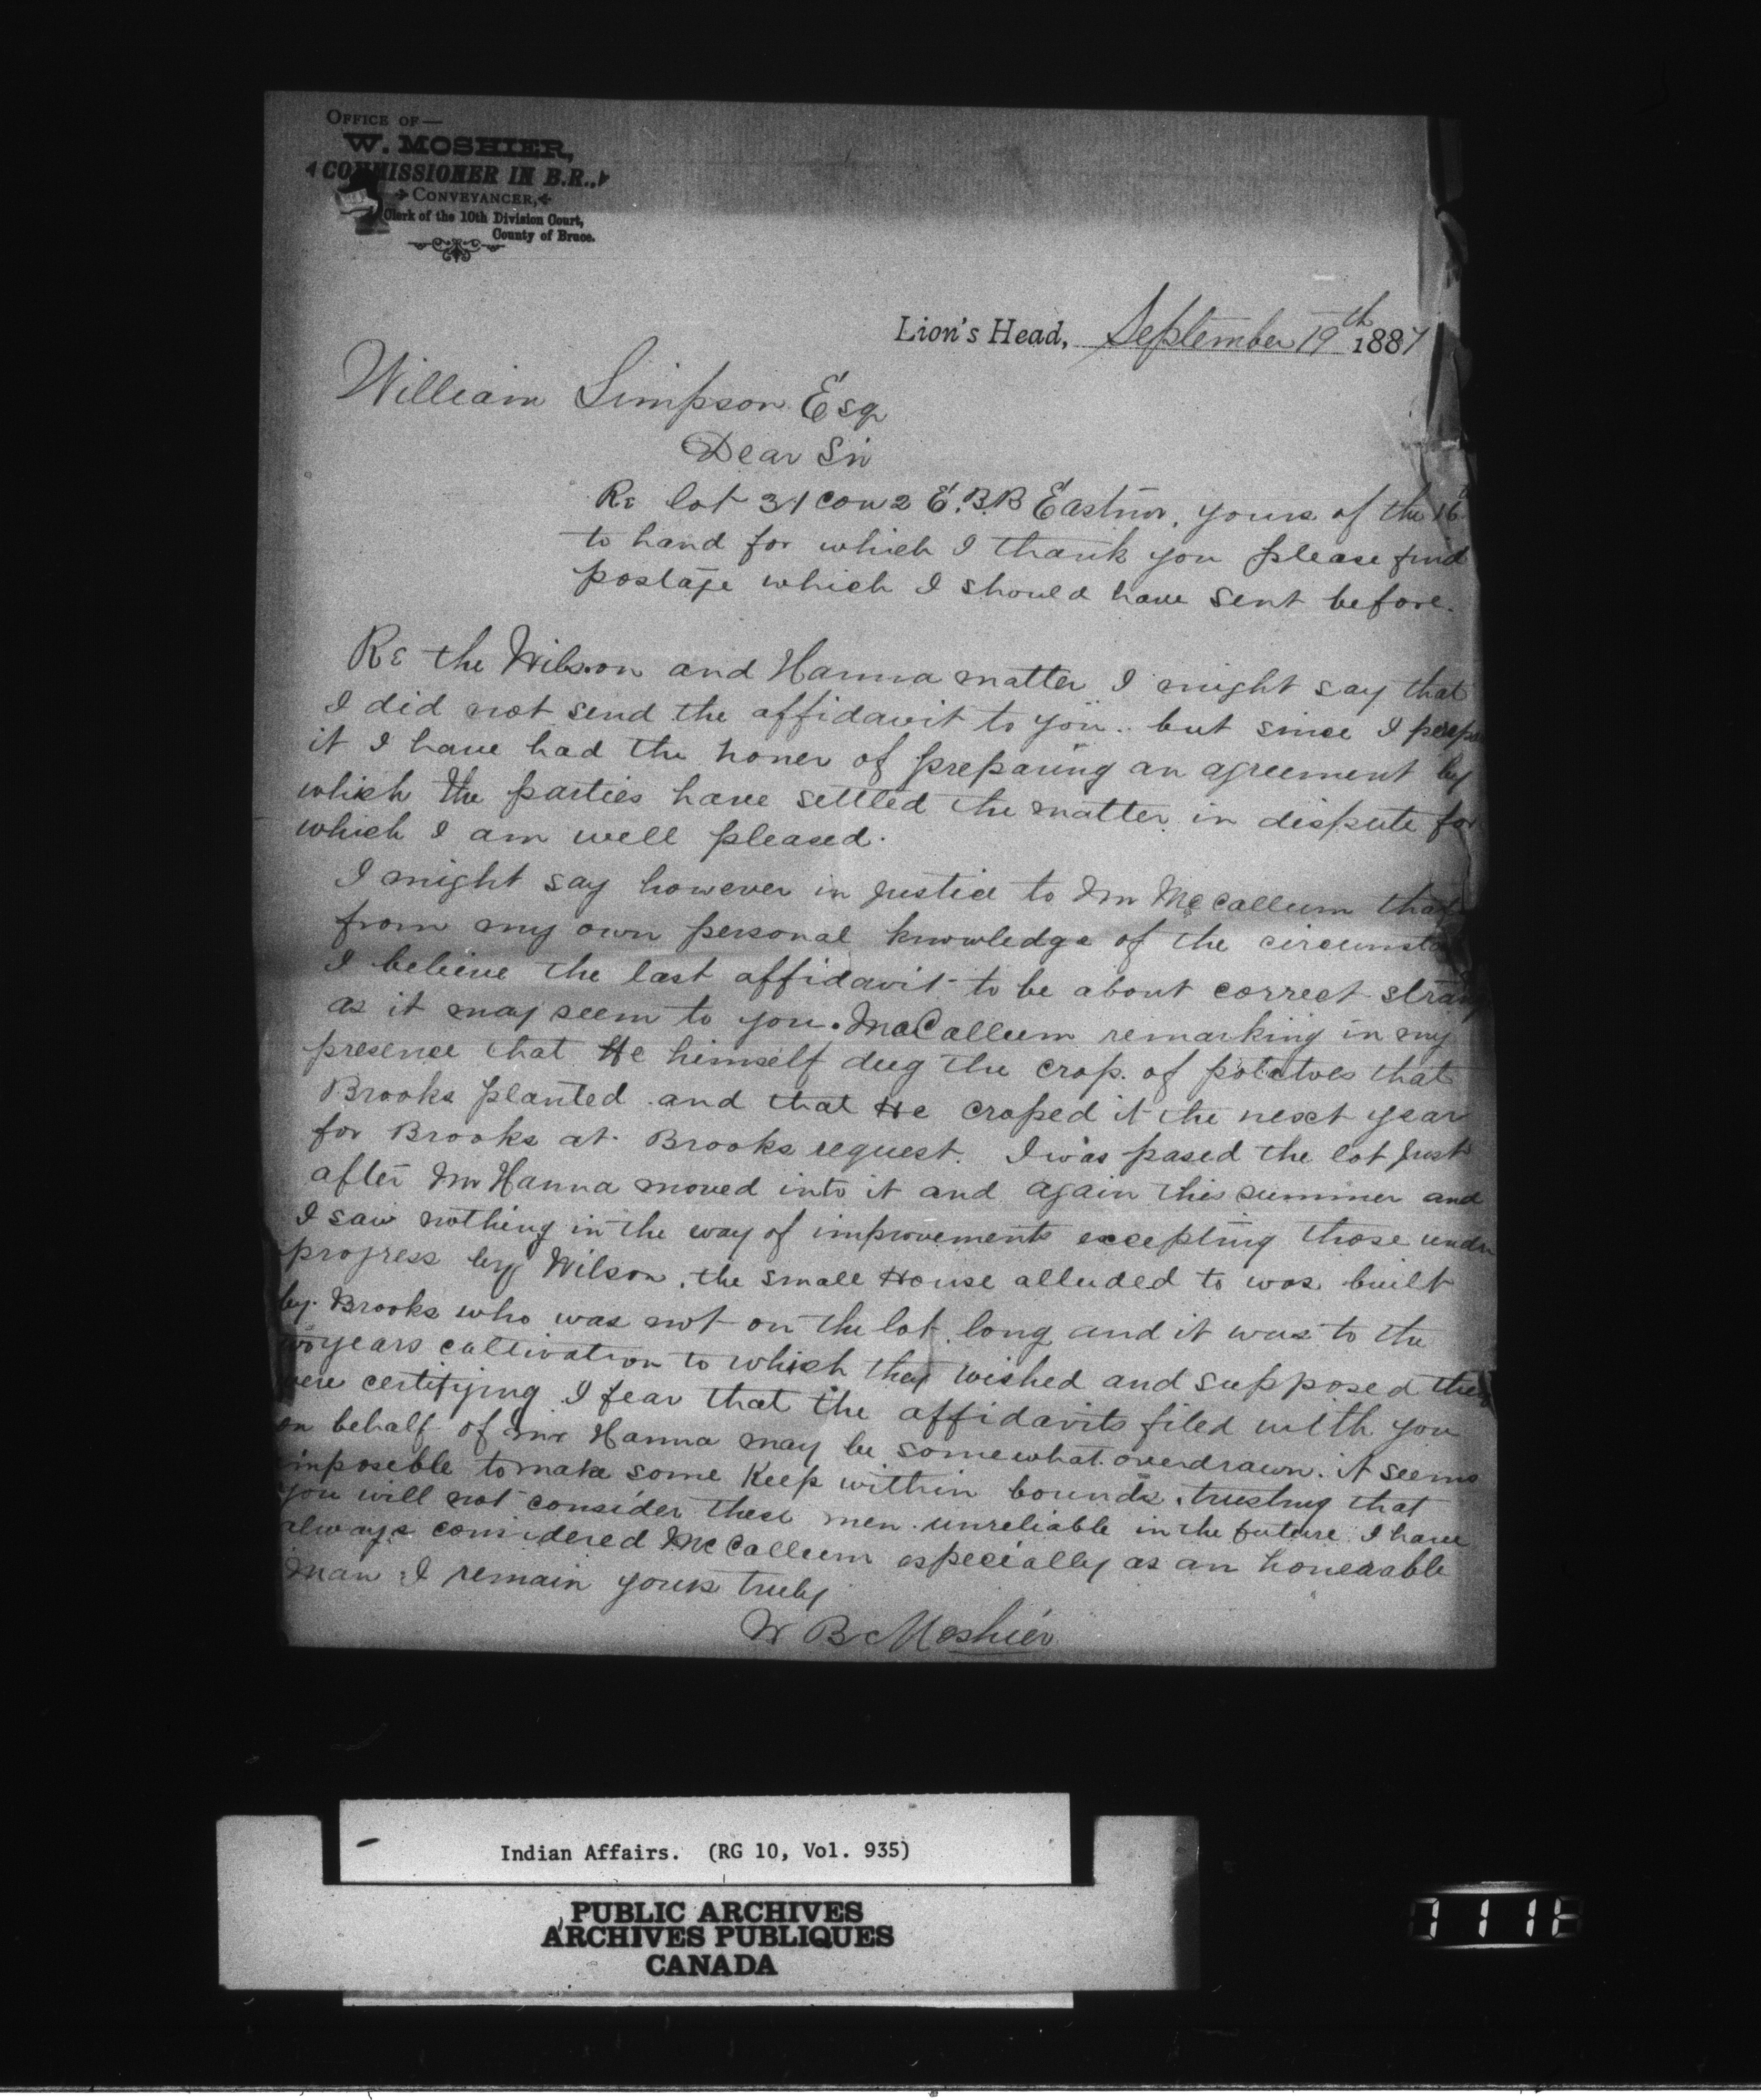 OFFICE OF—
W. MOSHIER,
COMMISSIONER IN B.R.,
CONVEYANCER,
Clerk of the 10th Division Court,
County of Bruce.
Lion's Head, September 19th 1887
William Simpson Esq
Dear Sir
Re lot 31 con 2 E.B.R Eastnor, yours of the 16
to hand for which I thank you please find
postage which I should have sent before.
Re the Wilson and Hanna matter I might say that
I did not send the affidavit to you.. but since I
it I have had the honer of preparing an agreement by
which the parties have settled the matter in dispute for
which I am well pleased.
I might say however in Justice to Mr McCallum that
from my own personal knowledge of the
I believe the last affidavit to be about correct
as it may seem to you. McCallum remarking in my
presence that He himself dug the crop. of potatoes that
Brooks planted and that He croped it the next year
for Brooks at Brooks request. I was pased the lot Just
after Mr Hanna moved into it and again this summer and
I saw nothing in the way of improvements excepting those under
progress by Wilson, the small House alluded to was built
by Brooks who was not on the lot long and it was to the
two years cultivation to which they wished and supposed they
were certifying I fear that the affidavits filed with you
on behalf of Mr Hanna may be somewhat overdrawn. it seems
imposeble to make some Keep within bounds. trusting that
you will not consider these men unreliable in the future I have
always considered McCallum especially as an honerable
man I remain yours truly
W B Moshier
Indian Affairs. (RG 10, Vol. 935)
PUBLIC ARCHIVES
ARCHIVES PUBLIQUES
CANADA